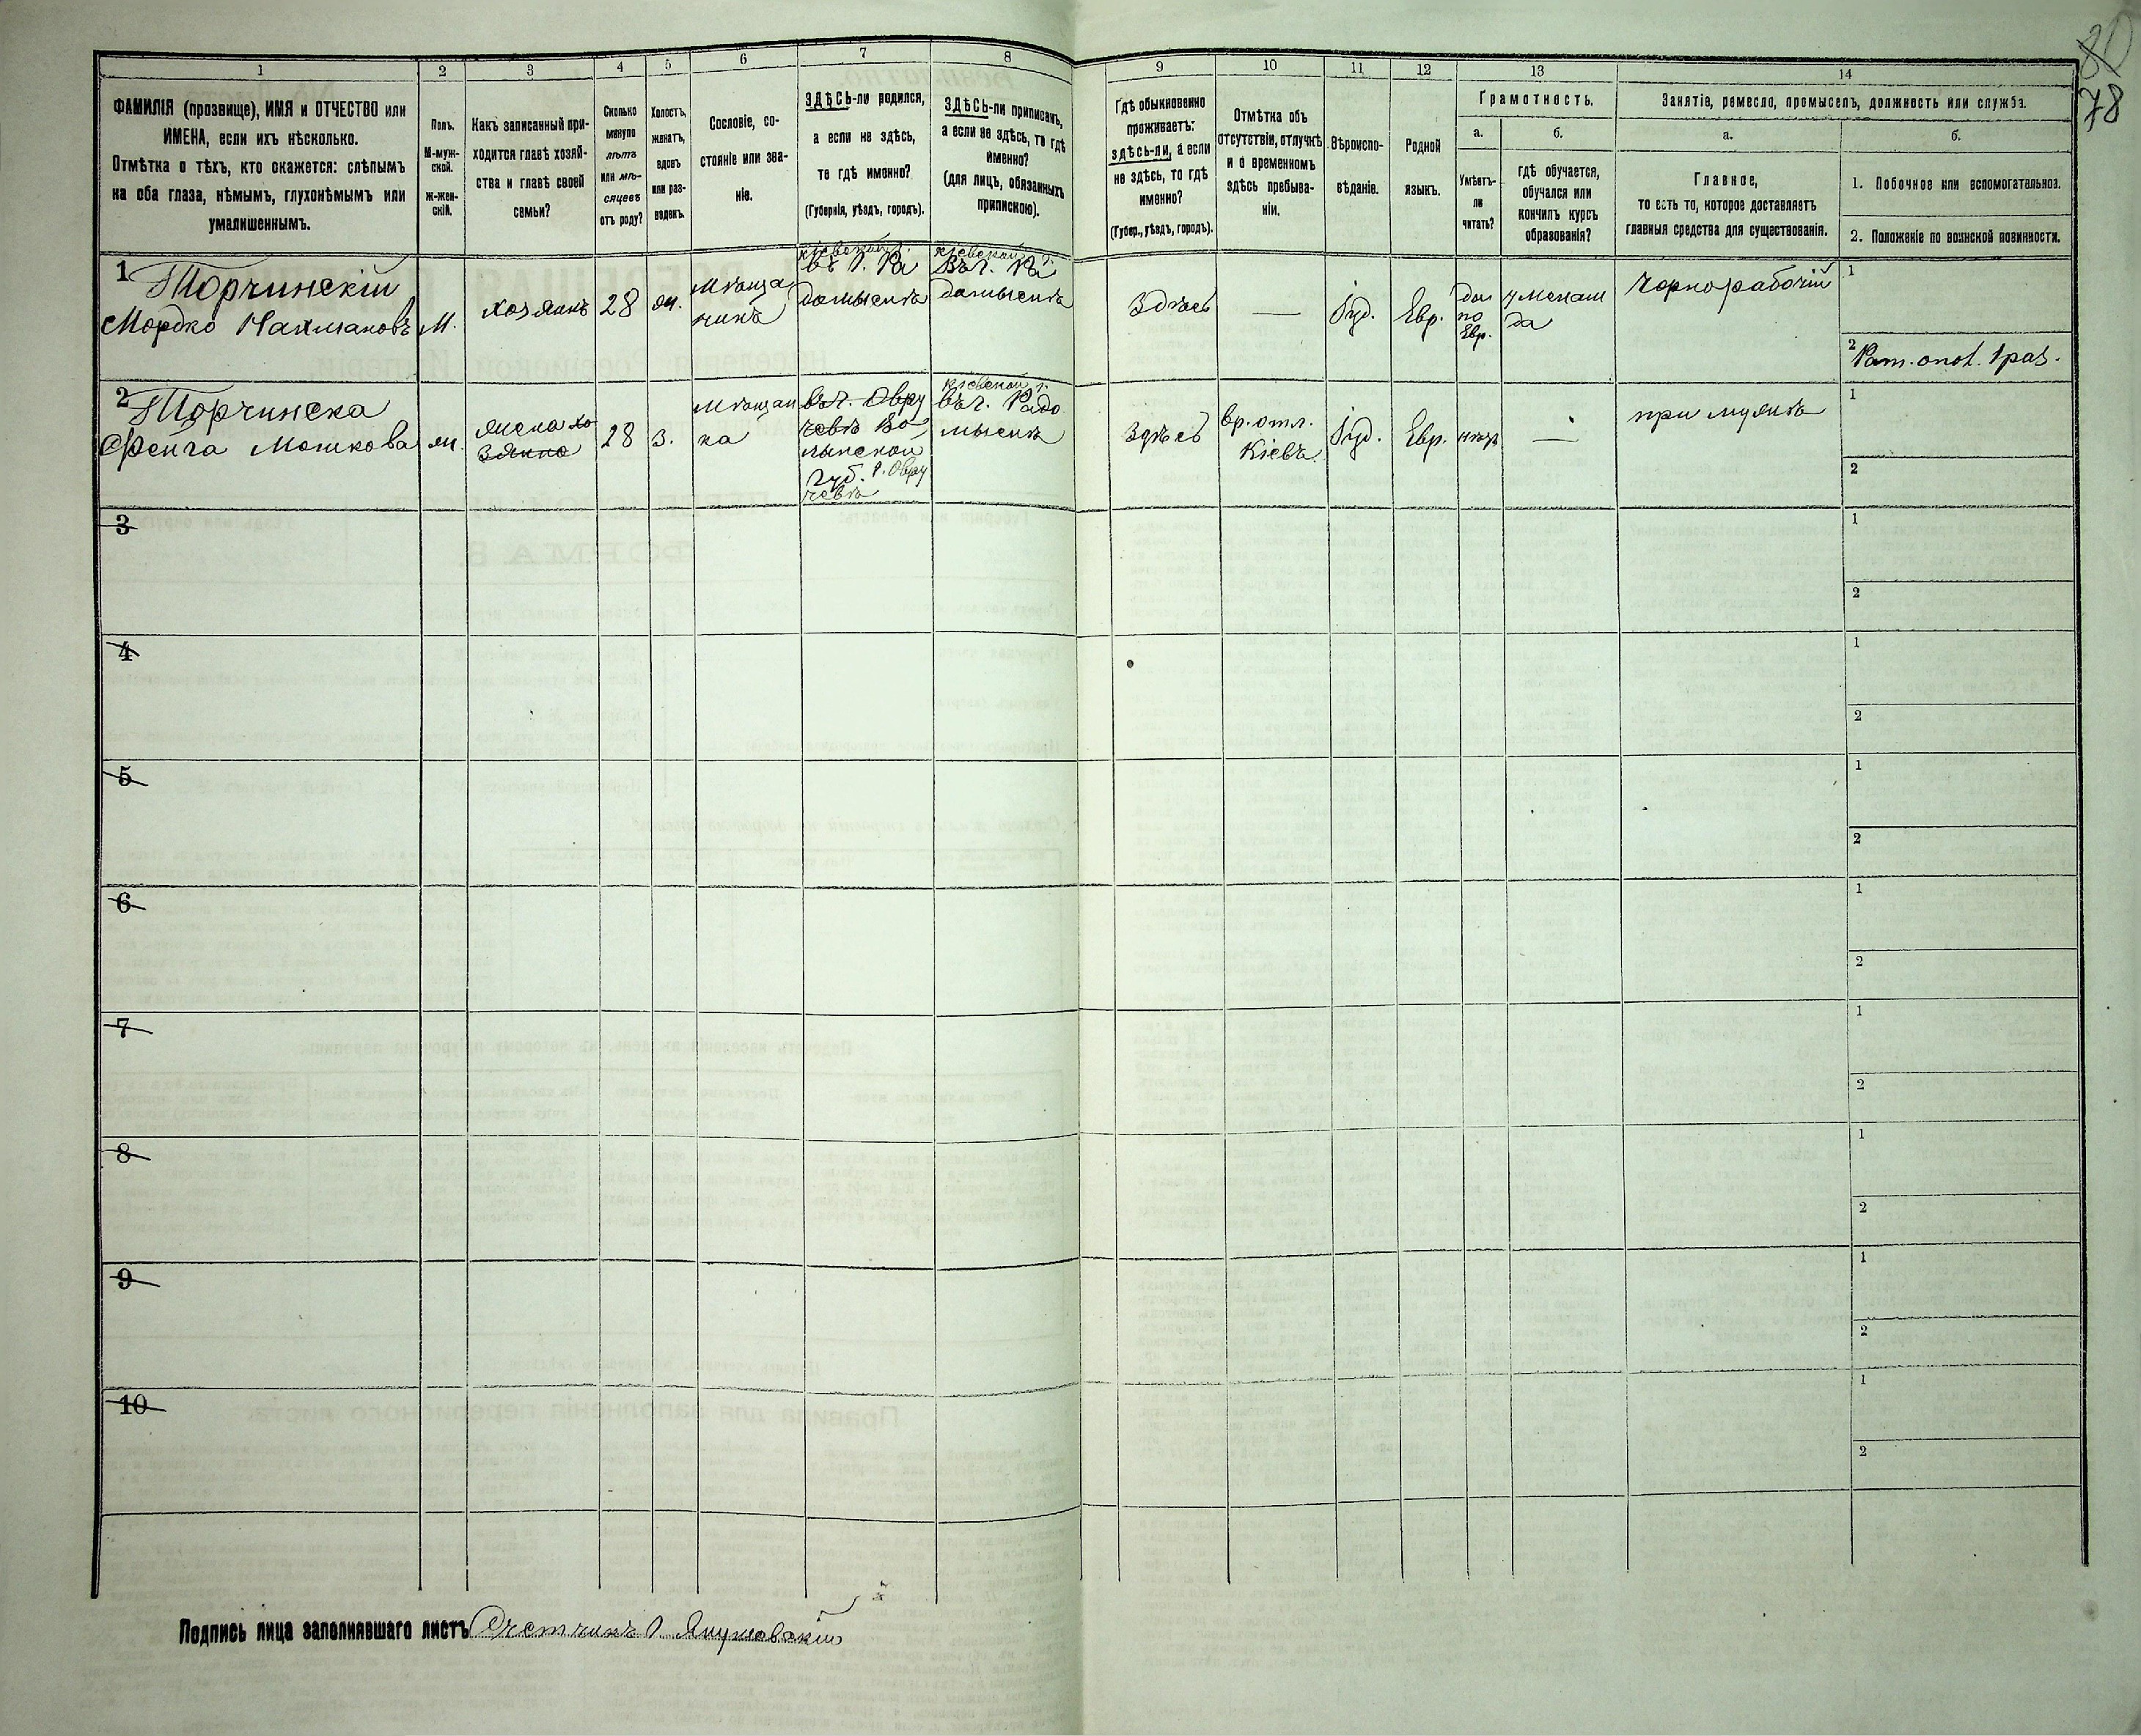 80
78
1
2
3
4
5
6
7
8
9
10
11
12
13
14
ФАМИЛІЯ (прозвище), ИМЯ и ОТЧЕСТВО или
ИМЕНА, если ихъ нѣсколько.
Отмѣтка о тѣхъ, кто окажется: слѣпымъ
на оба глаза, нѣмымъ, глухонѣмымъ или
умалишеннымъ.
Полъ.
М-муж-
ской.
Ж-жен-
скій.
Какъ записанный при-
ходится главѣ хозяй-
ства и главѣ своей
семьи?
Сколько
минуло
лѣтъ
или мѣ-
сяцевъ
отъ роду?
Холостъ,
женатъ,
вдовъ
или раз-
веденъ.
Сословіе, со-
стояніе или зва-
ніе.
ЗДѢСЬ-ли родился,
а если не здѣсь,
то гдѣ именно?
(Губернія, уѣздъ, городъ).
ЗДѢСЬ-ли приписанъ,
а если не здѣсь, то гдѣ
именно?
(для лицъ, обязанныхъ
припискою).
Гдѣ обыкновенно
проживаетъ:
здѣсь-ли, а если
не здѣсь, то гдѣ
именно?
(Губер., уѣздъ, городъ).
Отмѣтка объ
отсутствіи, отлучкѣ
и о временномъ
здѣсь пребыва-
ніи.
Вѣроиспо-
вѣданіе.
Родной
языкъ.
Грамотность.
а.
Умѣетъ-
ли
читать?
б.
гдѣ обучается,
обучался или
кончилъ курсъ
образованія?
Занятіе, ремесло, промыселъ, должность или служба.
а.
Главное,
то есть то, которое доставляетъ
главныя средства для существованія.
б.
1. Побочное или вспомогательное.
2. Положеніе по воинской повинности.
1
Торчинскій
Мордко Нахмановъ
М.
хозяинъ
28
ж.
Мѣща
нинъ
Кіевской г.
въ г. Ра
домыслѣ
Кіевской г.
Въ г. Ра
домыслѣ
Здѣсь
—
Іуд.
Евр.
да
по
Евр.
у мелам
да
Чорнорабочій
1
2
Рат. опол. 1 раз.
2
Торчинска
Фейга Мошкова
ж.
жена хо
зяина
28
з.
Мѣщан
ка
въ г. Овру
чевѣ Во
лынской
Губ. г. Овру
чевѣ
Кіевской г.
въ г. Радо
мыслѣ
Здѣсь
вр. отл.
Кіевъ.
Іуд.
Евр.
нѣтъ
—
при мужѣ
1
2
3
1
2
4
1
2
5
1
2
6
1
2
7
1
2
8
1
2
9
1
2
10
1
2
Подпись лица заполнявшаго листъ Счетчикъ